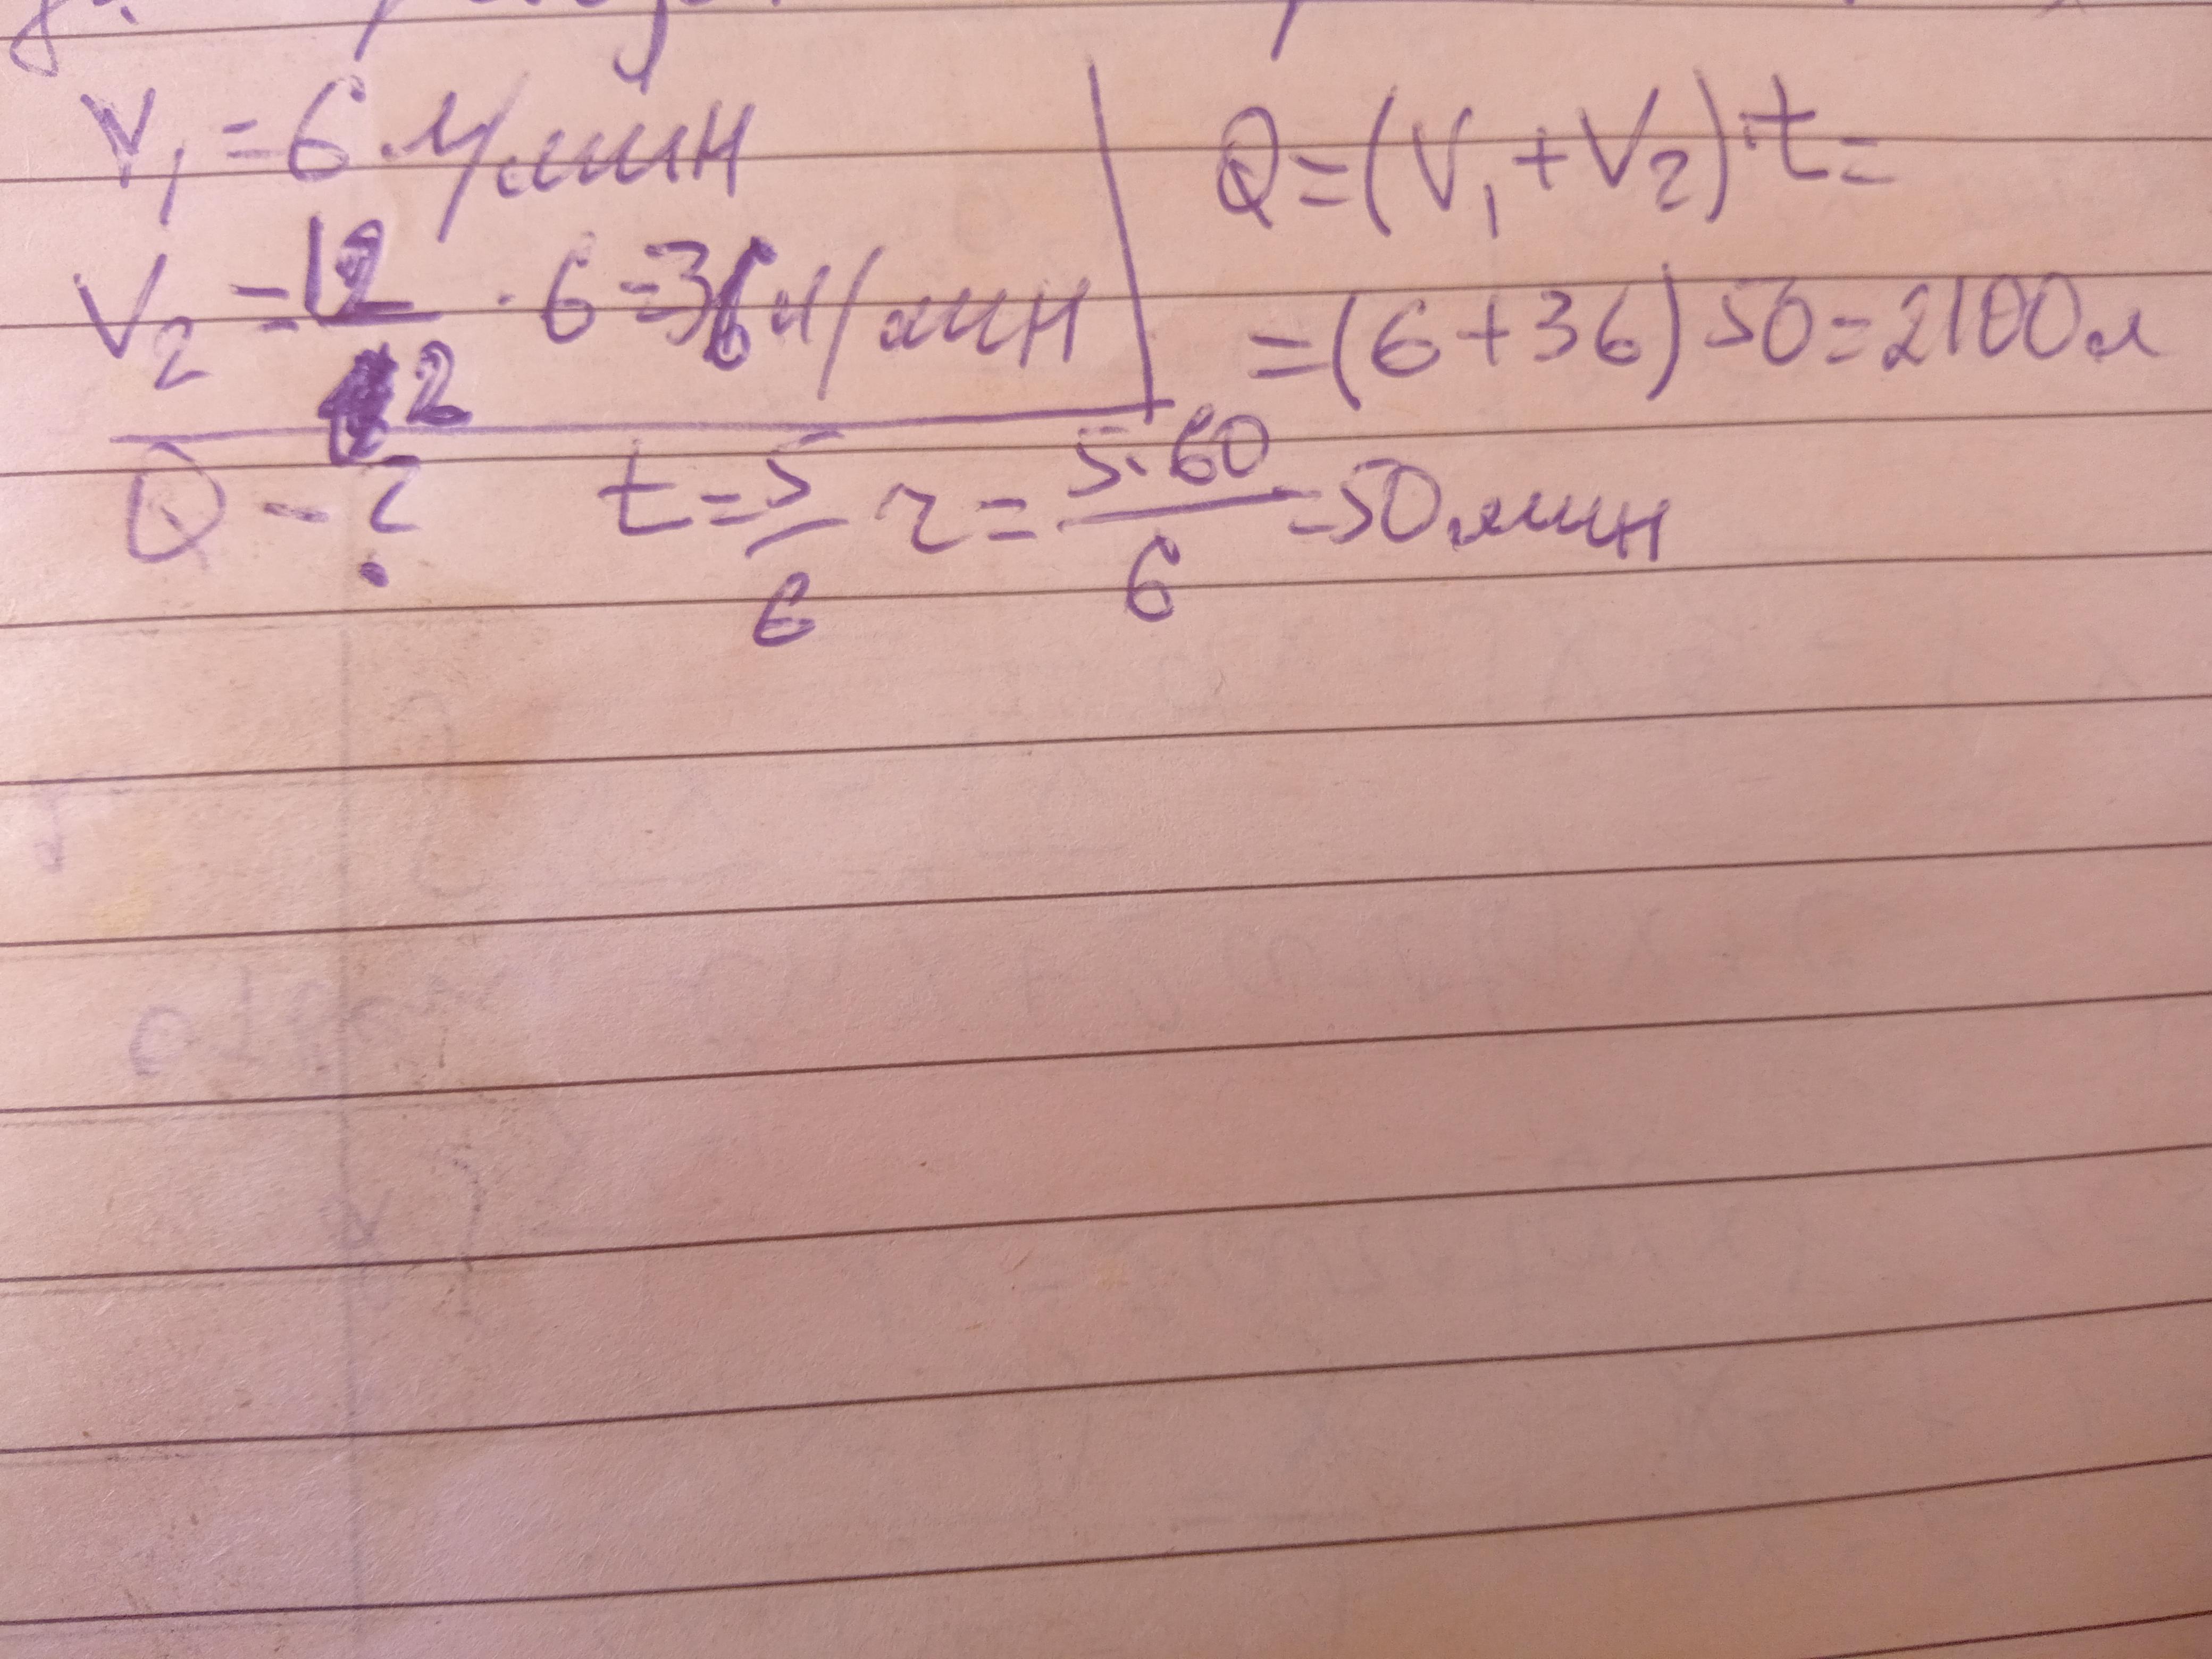 V₁ = 6 л/мин
V₂ = 12/2 · 6 = 36 л/мин
Q - ?
t = 5/6 г = 5·60/6 = 50 мин
Q = (V₁ + V₂) · t =
= (6 + 36) 50 = 2100 л